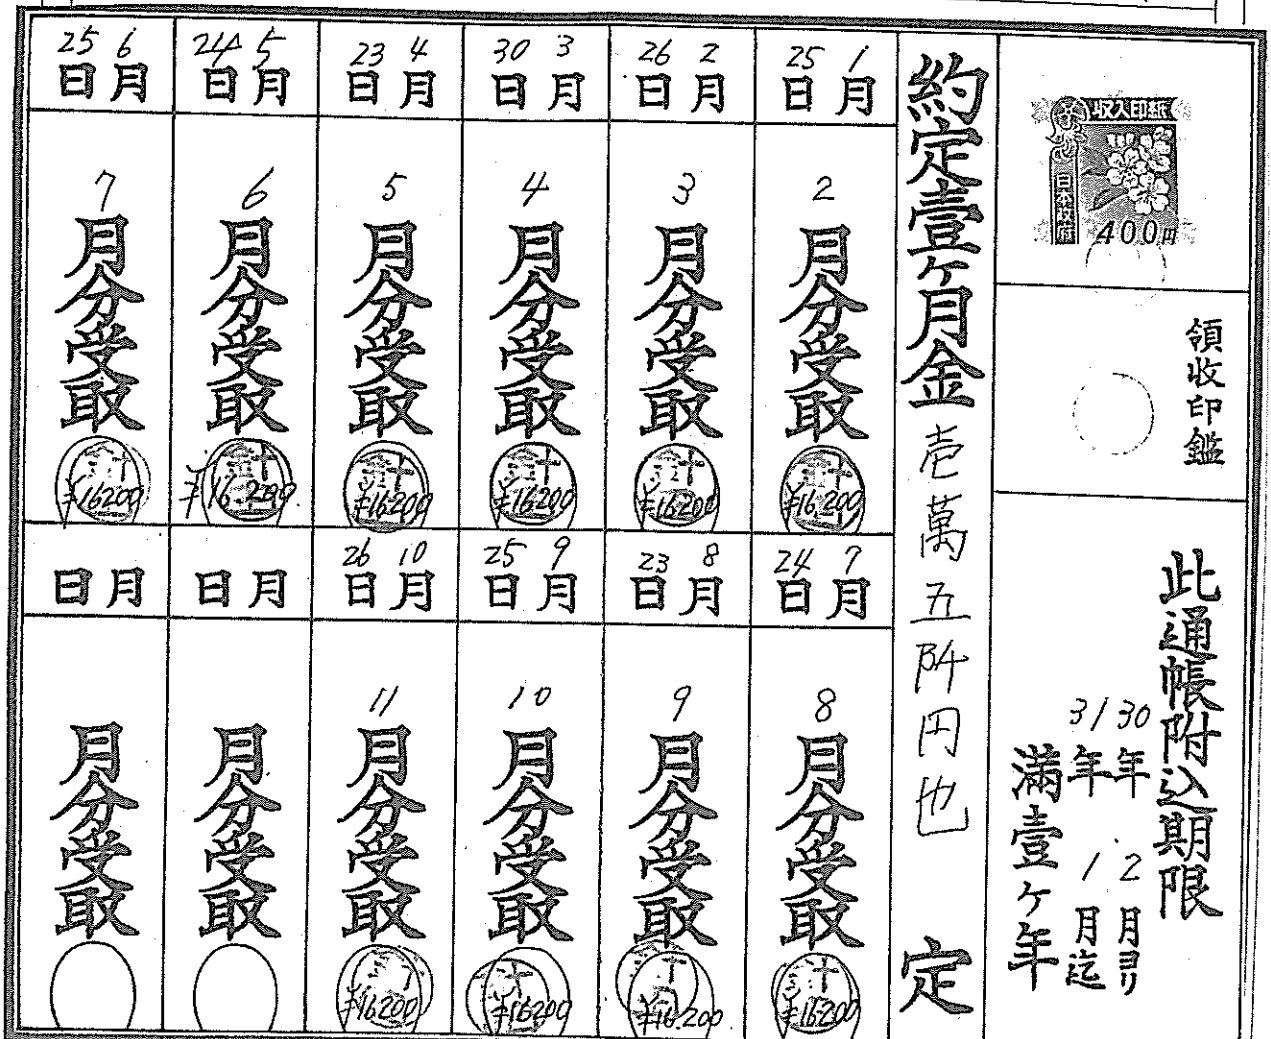 収入印紙
日本政府
400円
領収印鑑
此通帳附込期限
30年2月ヨリ
31年1月迄
満壹ヶ年
約定壹ヶ月金壱萬五阡円也 定
1月25日
2月分受取
¥16,200
2月26日
3月分受取
¥16200
3月30日
4月分受取
¥16200
4月23日
5月分受取
¥16200
5月24日
6月分受取
¥16.200
6月25日
7月分受取
¥16200
7月24日
8月分受取
¥16200
8月23日
9月分受取
¥16.200
9月25日
10月分受取
¥16200
10月26日
11月分受取
¥16200
月 日
月分受取
月 日
月分受取